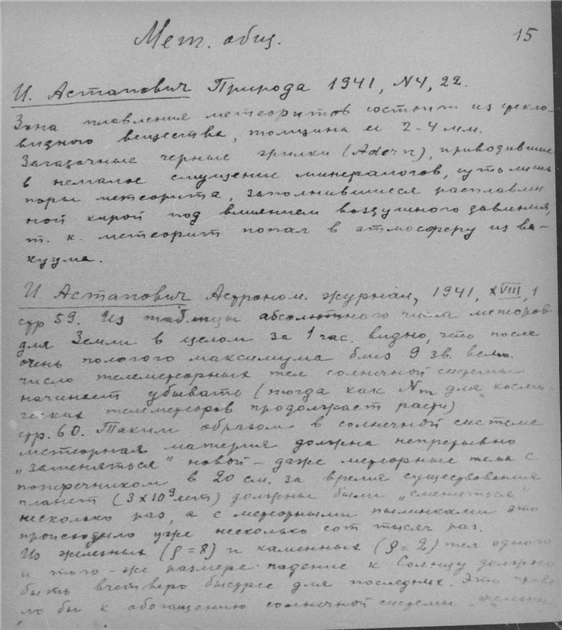 Мет. общ.
15
И. Астапович Природа 1941, N4, 22.
Зона плавления метеоритов состоит из стекло-
видного вещества, толщина ее 2-4 мм.
Загадочные черные жилки (Adern), приводившие
в немалое смущение минералогов, суть лишь
поры метеорита, заполнившиеся расплавлен
ной корой под влиянием воздушного давления,
т. к. метеорит попал в атмосферу из ва-
куума.
И. Астапович Астроном. журнал, 1941, XVIII, 1
стр 59. Из таблицы абсолютного числа метеоров
для Земли в целом за 1 час. видно, что после
очень пологого максимума близ 9 зв. велич.
число телеметеорных тел солнечной системы
начинает убывать (тогда как Nm для косми-
ческих телеметеоров продолжает расти)
стр. 60. Таким образом в солнечной системе
метеорная материя должна непрерывно
„заменяться" новой - даже метеорные тела с
поперечником в 20 см. за время существования
планет (3×10⁹ лет) должны были „смениться"
несколько раз, а с метеорными пылинками это
происходило уже несколько сот тысяч раз.
Из железных (ρ=8) и каменных (ρ=2) тел одного
и того-же размера падение к Солнцу должно
быть вчетверо быстрее для последних. Это приве
ло бы к обогащению солнечной системы